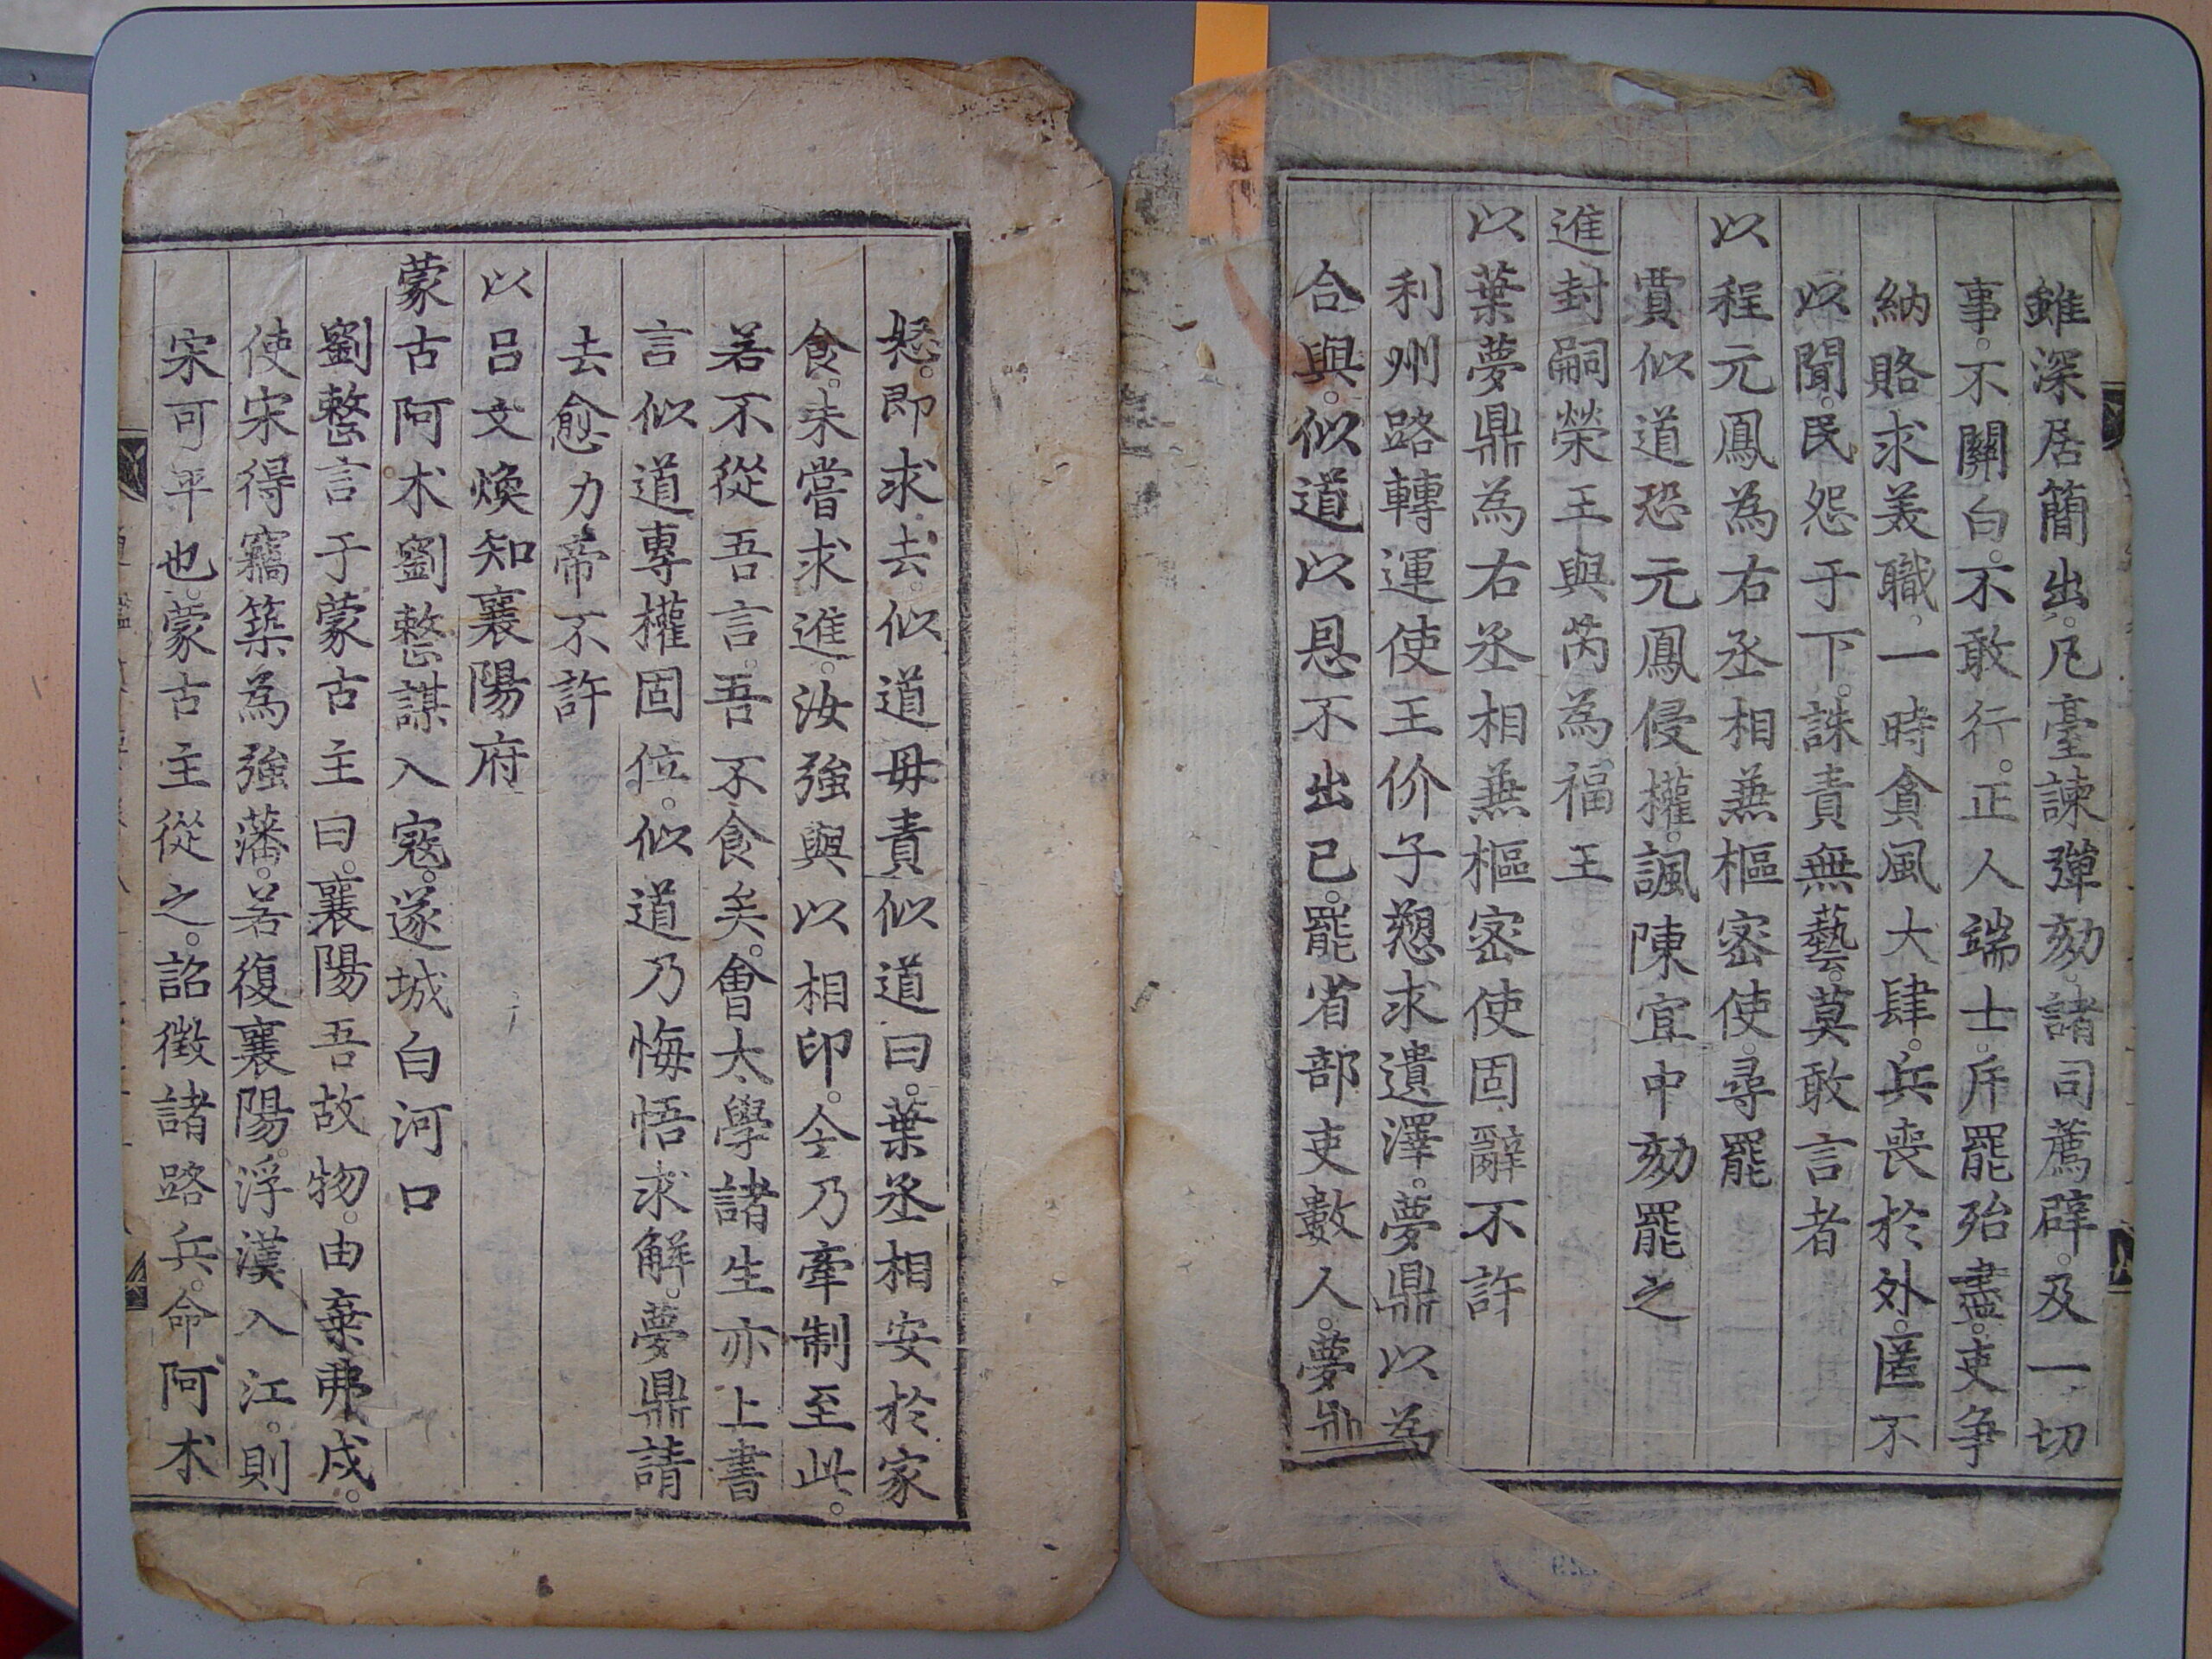 雖深居簡出。凡臺諫彈劾。諸司薦辟。及一切
事。不關白。不敢行。正人端士。斥罷殆盡。吏爭
納賂求美職。一時貪風大肆。兵喪於外。匿不
以聞。民怨于下。誅責無藝。莫敢言者
以程元鳳為右丞相兼樞密使。尋罷
賈似道恐元鳳侵權。諷陳宜中劾罷之
進封嗣榮王與芮為福王
以葉夢鼎為右丞相兼樞密使固辭不許
利州路轉運使王价子愬求遺澤。夢鼎以為
合與。似道以恩不出己。罷省部吏數人。夢鼎
怒。即求去。似道毋責似道曰。葉丞相安於家
食。未嘗求進。汝強與以相印。今乃牽制至此。
若不從吾言。吾不食矣。會太學諸生亦上書
言似道專權固位。似道乃悔悟求解。夢鼎請
去愈力帝不許
以呂文煥知襄陽府
蒙古阿术。劉整謀入寇。遂城白河口
劉整言于蒙古主曰。襄陽吾故物。由棄弗戍。
使宋得竊築為強藩。若復襄陽。浮漢入江。則
宋可平也。蒙古主從之。詔徵諸路兵。命阿术